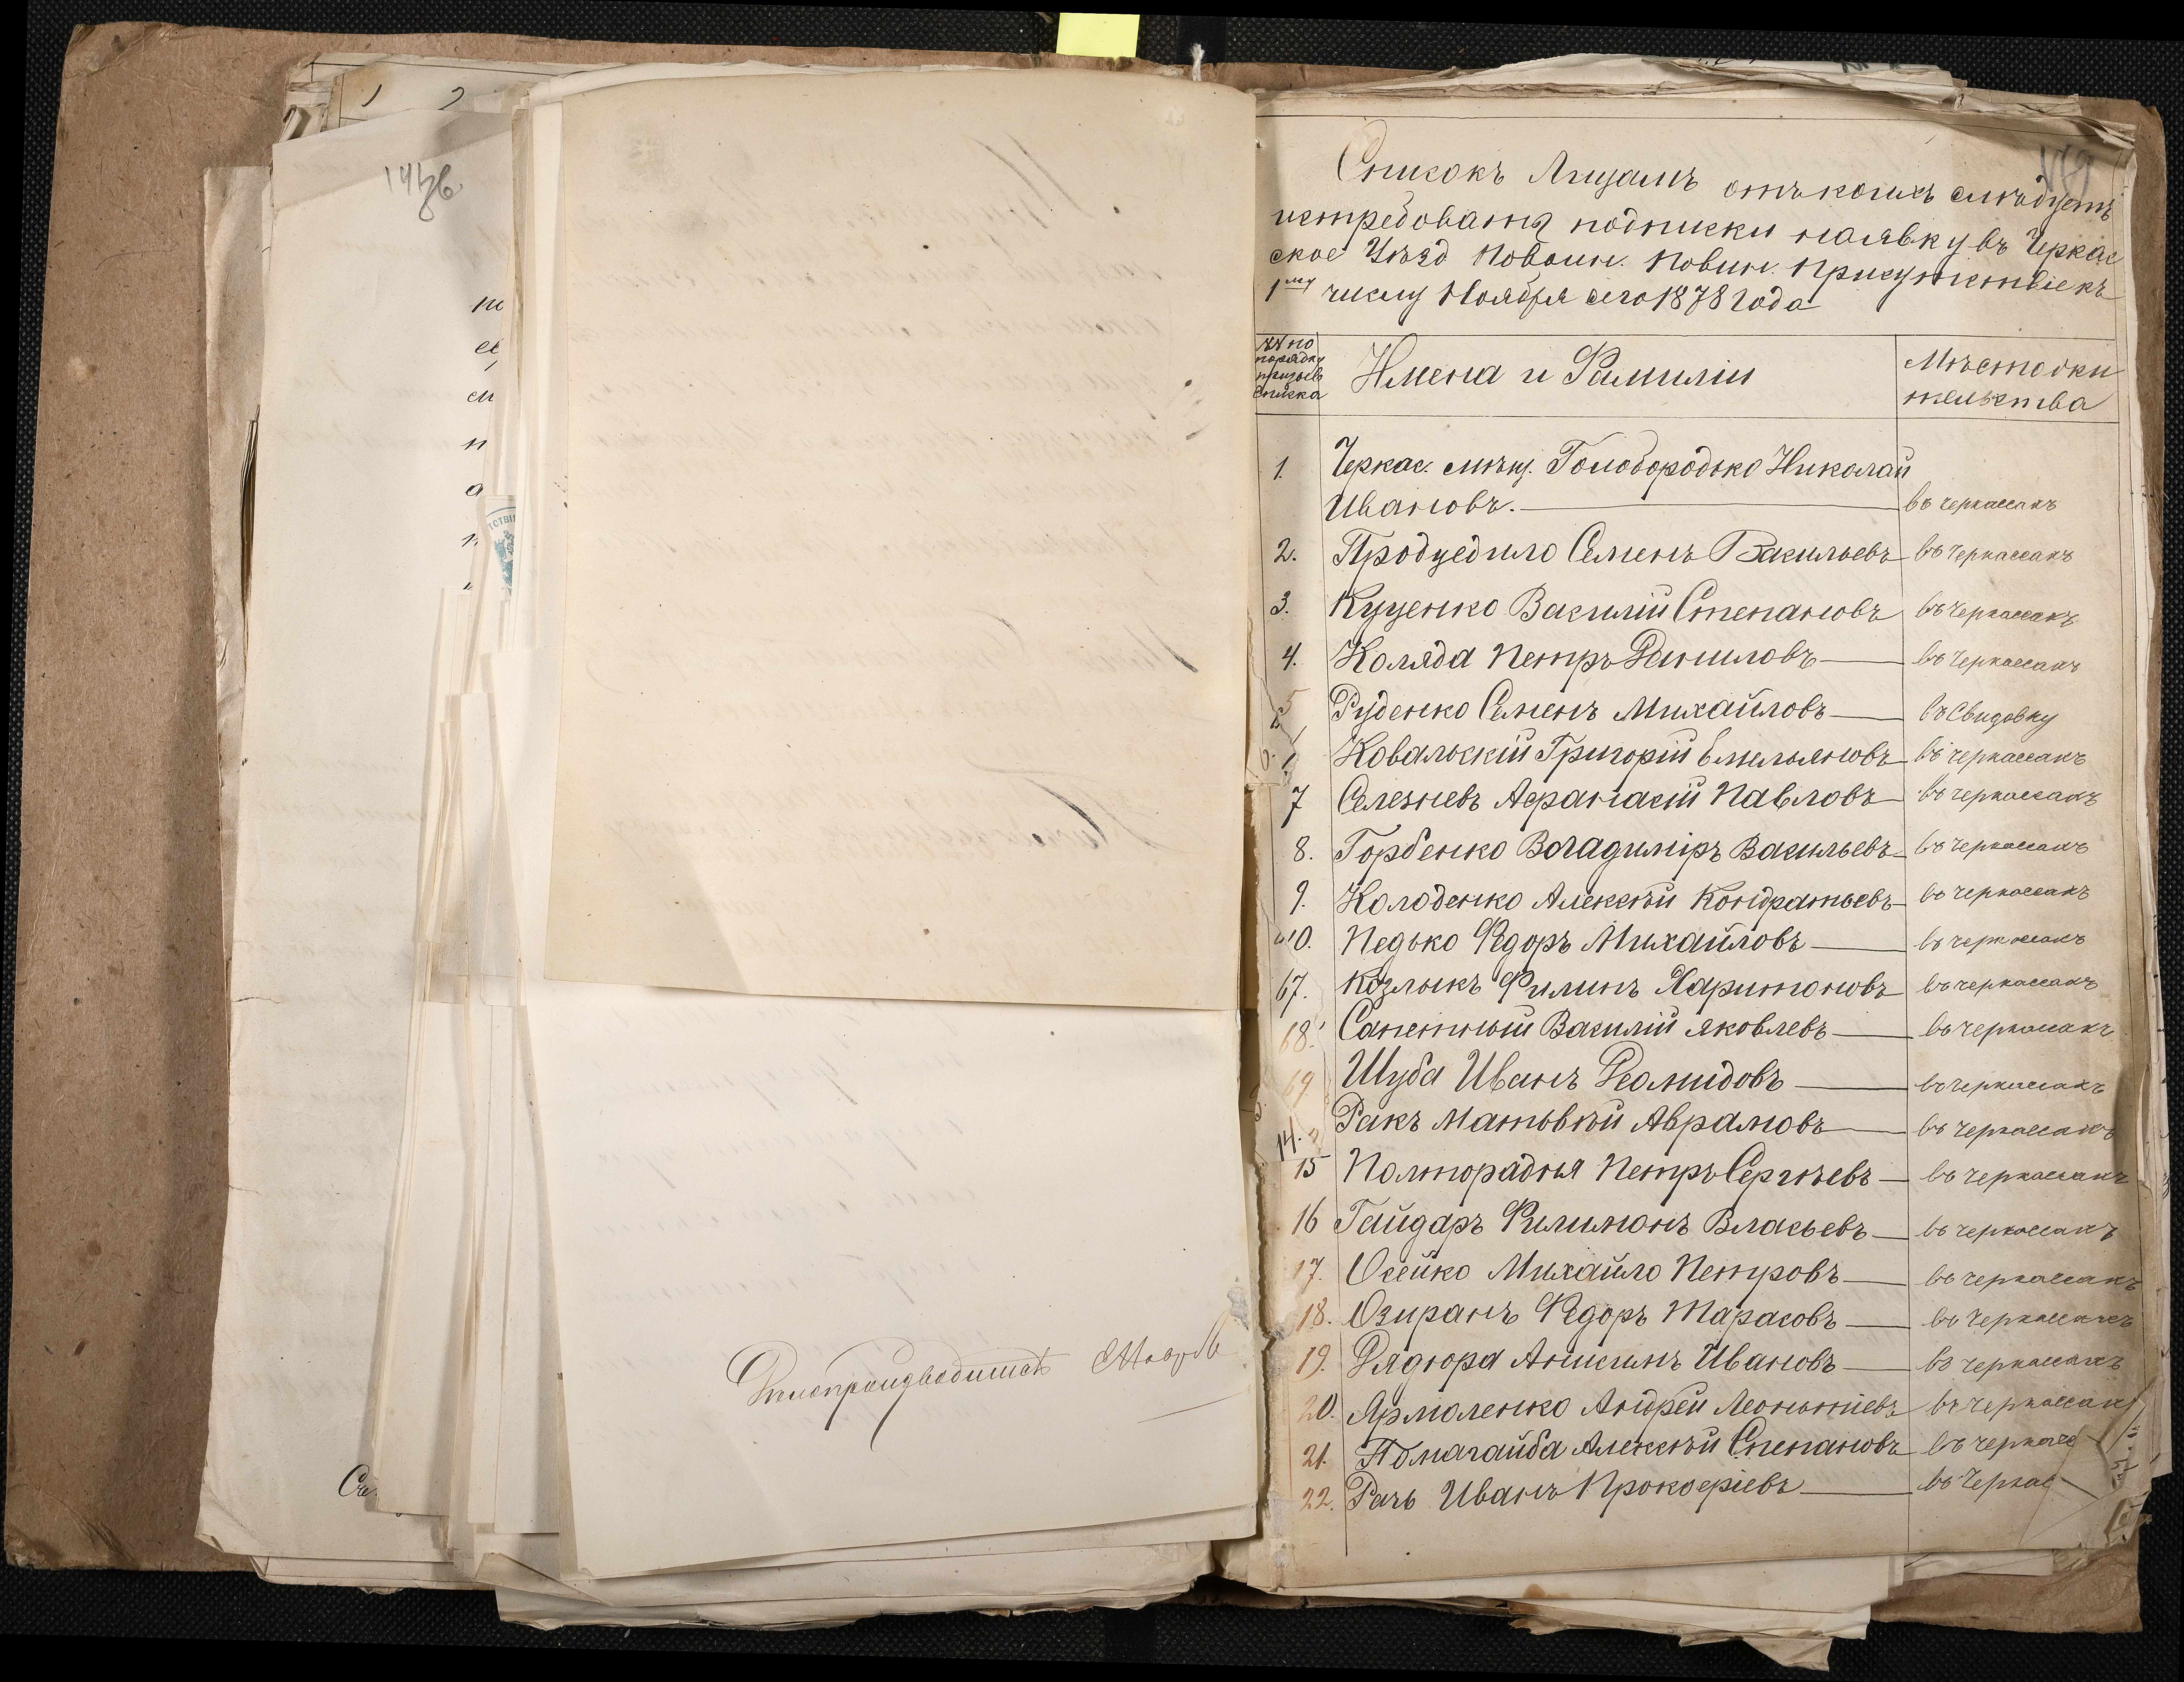 Списокъ Лицамъ отъ коихъ слѣдуетъ
истребовать подписки наявку въ Черкас
ское Уѣзд Повоин. Повин. Присутствіе къ
1му числу Ноября сего 1878 года
№№ по порядку призыв. списка
Имена и Фамиліи
Мѣсто жи
тельства
1. Черкас. мѣщ. Голобородько Николай
Ивановъ. въ черкассахъ
2. Продуедило Семенъ Васильевъ въ черкассахъ
3. Куценко Василій Степановъ въ черкассахъ
4. Коляда Петръ Даниловъ въ черкассахъ
5 Руденко Семенъ Михайловъ въ Свидовку
6. Ковальскій Григорій Емельяновъ въ черкассахъ
7 Селезневъ Афанасій Павловъ въ черкассахъ
8. Горбенко Владиміръ Васильевъ въ черкассахъ
9. Колоденко Алексѣй Кондратьевъ въ черкассахъ
10. Недько Федоръ Михайловъ въ черкассахъ
67. Козлыкъ Филипъ Харитоновъ въ черкассахъ
68. Сапетный Василій Яковлевъ въ черкассахъ
69 Шуба Иванъ Деомидовъ въ черкассахъ
14. Ракъ Матьвѣй Аврамовъ въ черкассахъ
15 Полторадня Петръ Сергѣевъ въ черкассахъ
16 Гайдаръ Филимонъ Власьевъ въ черкассахъ
17. Осейко Михайло Петровъ въ черкассахъ
18. Озиранъ Федоръ Тарасовъ въ черкассахъ
19. Дядюра Анисимъ Ивановъ въ черкассахъ
20. Ярмоленко Андрей Леонтіевъ въ черкассах
21. Помагайба Алексѣй Степановъ въ черкасс
22. Рачъ Иванъ Прокофіевъ въ Черкас
Дѣлопроизводитель